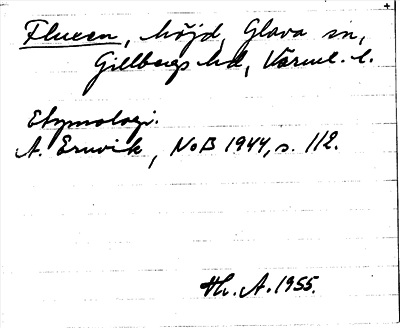 Fluxen, höjd, Glava sn,
Gillbergs hd, Värml. l.
Etymologi.
A. Ernvik, NoB 1944, s. 112.
Hr. A. 1955.